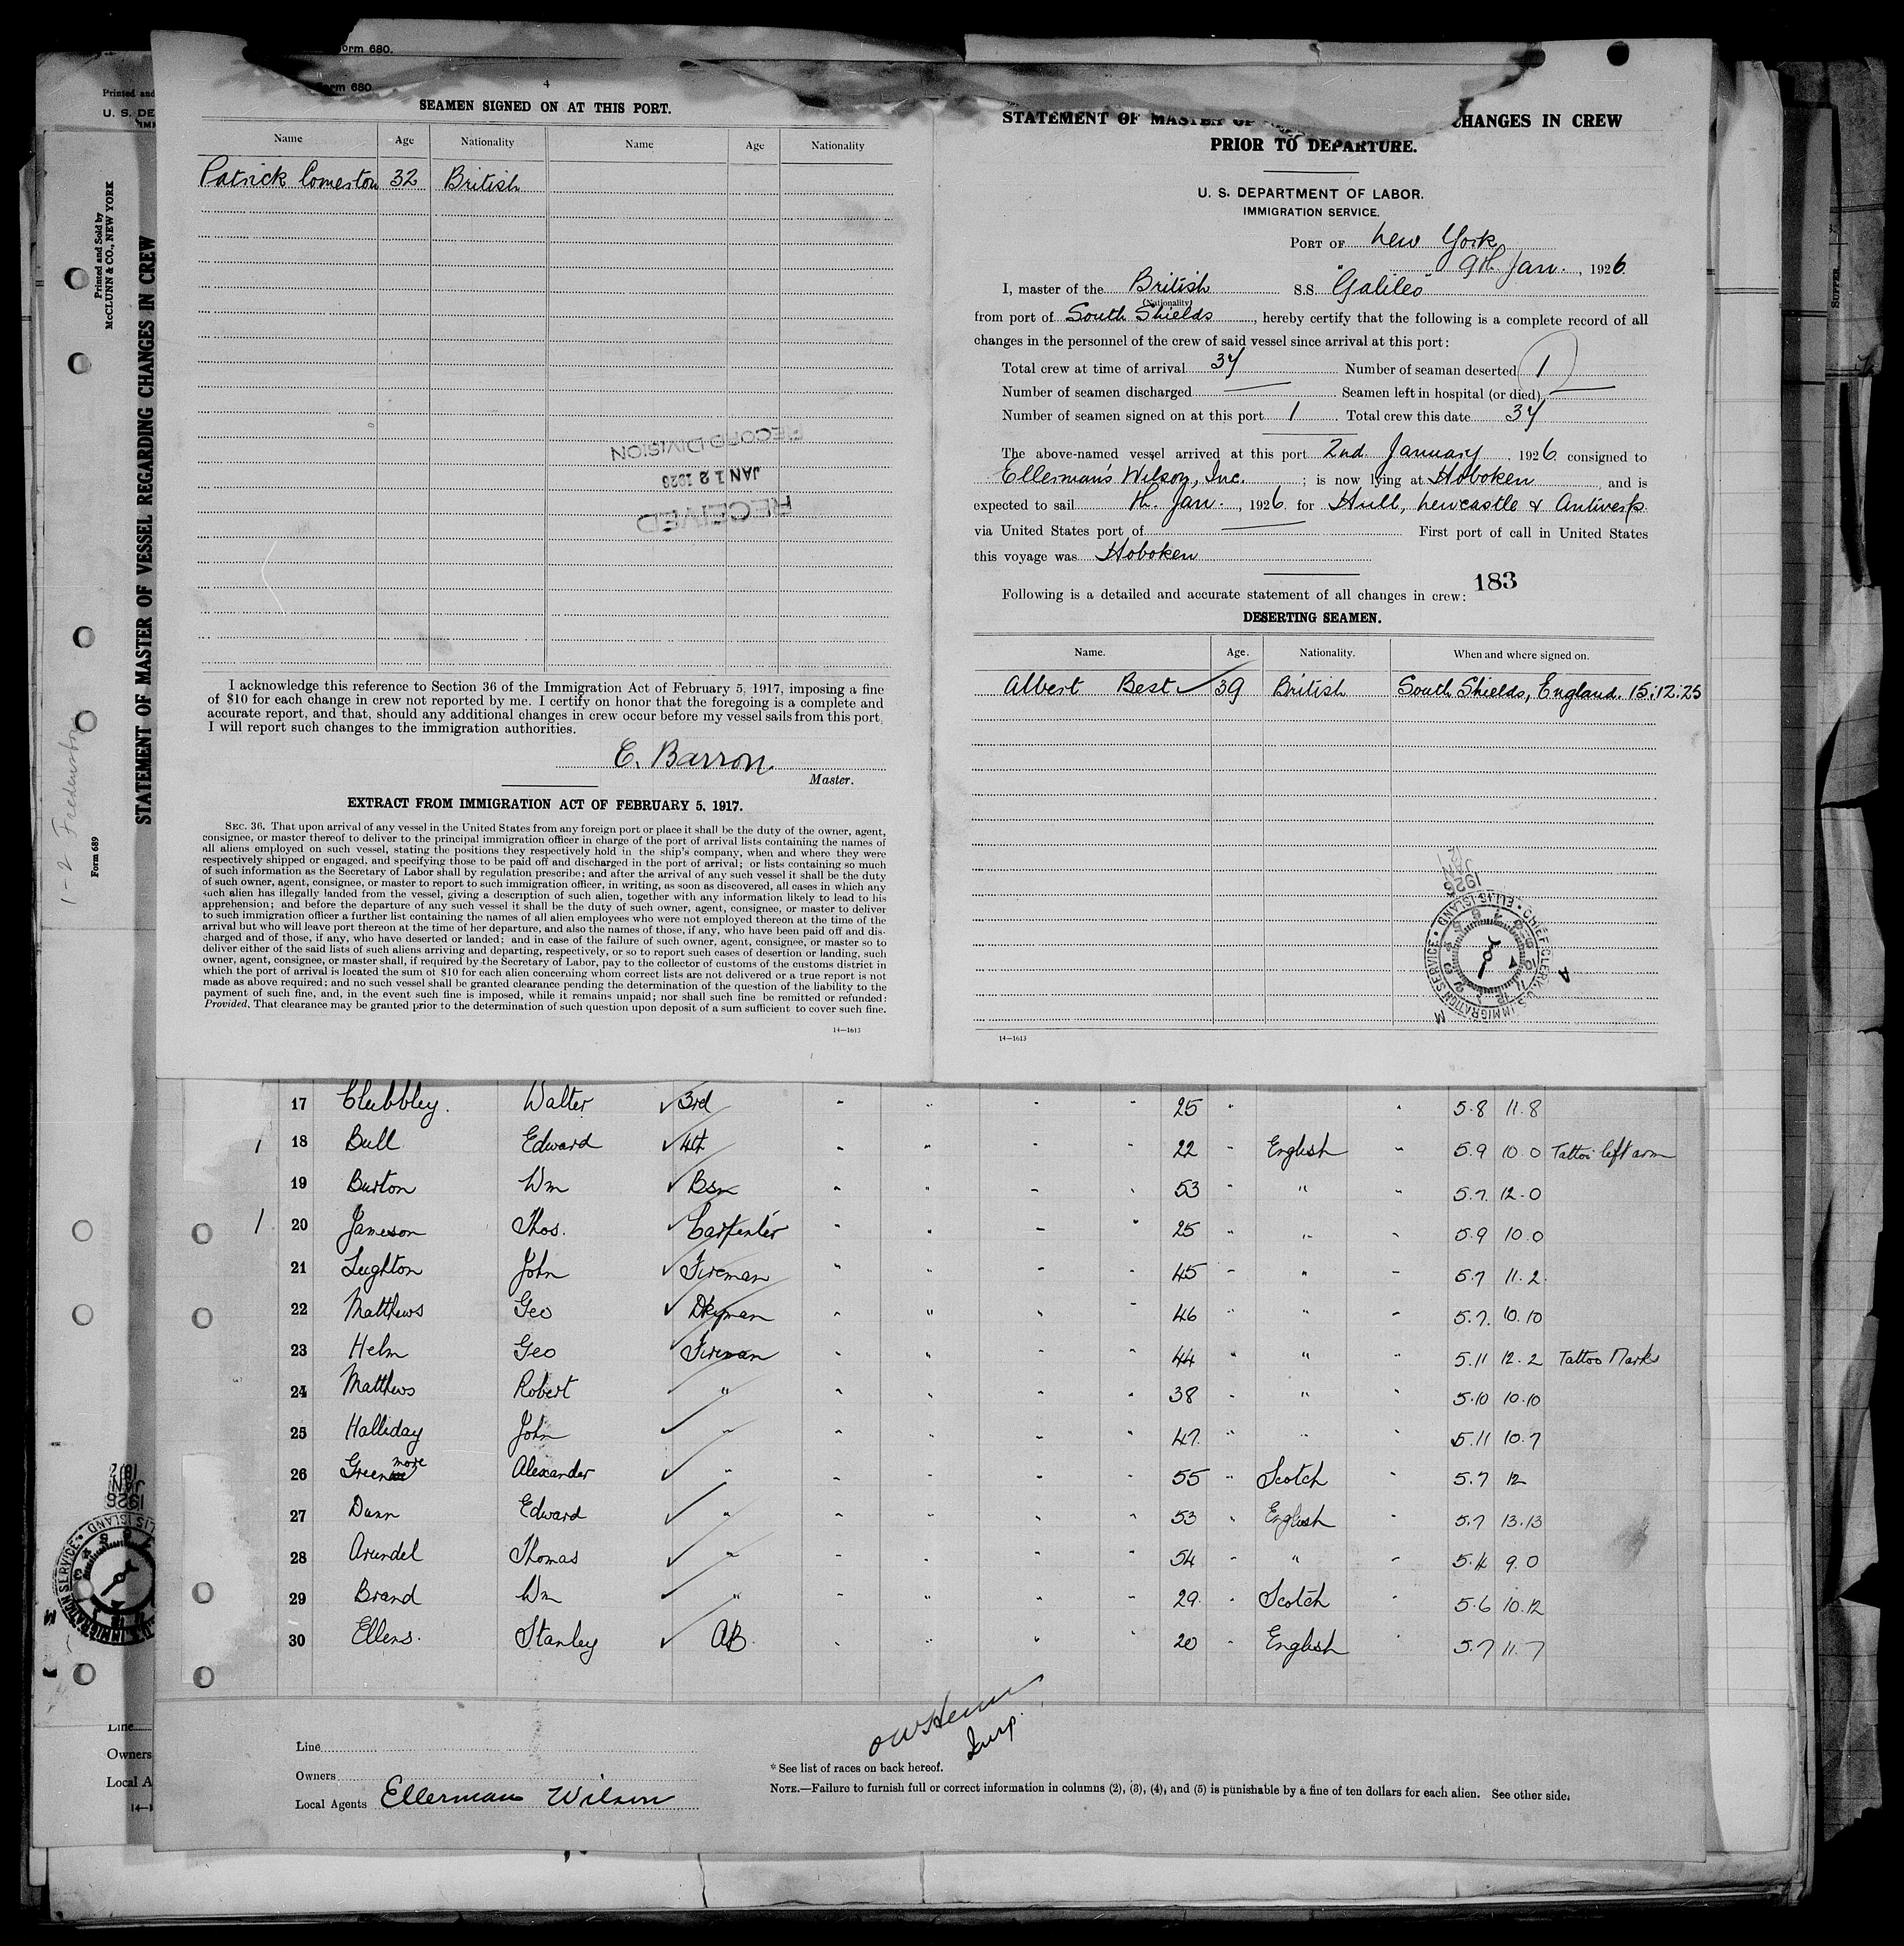 Form 680.
Form 680
4
SEAMEN SIGNED ON AT THIS PORT.
Name Age Nationality Name Age Nationality
Patrick Comerton 32 British
RECORD DIVISION
JAN 12 1926
RECEIVED
I acknowledge this reference to Section 36 of the Immigration Act of February 5, 1917, imposing a fine
of $10 for each change in crew not reported by me. I certify on honor that the foregoing is a complete and
accurate report, and that, should any additional changes in crew occur before my vessel sails from this port,
I will report such changes to the immigration authorities.
E. Barron.
Master.
EXTRACT FROM IMMIGRATION ACT OF FEBRUARY 5, 1917.
SEC. 36. That upon arrival of any vessel in the United States from any foreign port or place it shall be the duty of the owner, agent,
consignee, or master thereof to deliver to the principal immigration officer in charge of the port of arrival lists containing the names of
all aliens employed on such vessel, stating the positions they respectively hold in the ship's company, when and where they were
respectively shipped or engaged, and specifying those to be paid off and discharged in the port of arrival; or lists containing so much
of such information as the Secretary of Labor shall by regulation prescribe; and after the arrival of any such vessel it shall be the duty
of such owner, agent, consignee, or master to report to such immigration officer, in writing, as soon as discovered, all cases in which any
such alien has illegally landed from the vessel, giving a description of such alien, together with any information likely to lead to his
apprehension; and before the departure of any such vessel it shall be the duty of such owner, agent, consignee, or master to deliver
to such immigration officer a further list containing the names of all alien employees who were not employed thereon at the time of the
arrival but who will leave port thereon at the time of her departure, and also the names of those, if any, who have been paid off and dis-
charged and of those, if any, who have deserted or landed; and in case of the failure of such owner, agent, consignee, or master so to
deliver either of the said lists of such aliens arriving and departing, respectively, or so to report such cases of desertion or landing, such
owner, agent, consignee, or master shall, if required by the Secretary of Labor, pay to the collector of customs of the customs district in
which the port of arrival is located the sum of $10 for each alien concerning whom correct lists are not delivered or a true report is not
made as above required; and no such vessel shall be granted clearance pending the determination of the question of the liability to the
payment of such fine, and, in the event such fine is imposed, while it remains unpaid; nor shall such fine be remitted or refunded:
Provided, That clearance may be granted prior to the determination of such question upon deposit of a sum sufficient to cover such fine.
14—1613
STATEMENT OF MASTER OF CHANGES IN CREW
PRIOR TO DEPARTURE.
U. S. DEPARTMENT OF LABOR.
IMMIGRATION SERVICE.
PORT OF New York
9th Jan., 1926
I, master of the British S.S. "Galileo"
(Nationality)
from port of South Shields, hereby certify that the following is a complete record of all
changes in the personnel of the crew of said vessel since arrival at this port:
Total crew at time of arrival 37 Number of seaman deserted 1
Number of seamen discharged — Seamen left in hospital (or died) —
Number of seamen signed on at this port 1 Total crew this date 37
The above-named vessel arrived at this port 2nd January, 1926 consigned to
Ellerman's Wilson, Inc.; is now lying at Hoboken, and is
expected to sail th. Jan., 1926 for Hull, Newcastle & Antwerp.
via United States port of — First port of call in United States
this voyage was Hoboken
183
Following is a detailed and accurate statement of all changes in crew:
DESERTING SEAMEN.
Name. Age. Nationality. When and where signed on.
Albert Best 39 British South Shields, England. 15:12:25
1926
JAN
12
CHIEF CLERK, U.S. IMMIGRATION SERVICE • ELLIS ISLAND •
A
M
14—1613
Printed and
U. S. DE
Printed and Sold by
McCLUNN & CO., NEW YORK
STATEMENT OF MASTER OF VESSEL REGARDING CHANGES IN CREW
Form 689
1-2
SUFFER
17 Clubbley. Walter 3rd " " " " 25 " " 5.8 11.8
1 18 Bull Edward 4th " " " " 22 " English " 5.9 10.0 Tattoo left arm
19 Burton Wm Bsn " " " " 53 " " " 5.7. 12.0
1 20 Jameson Thos. Carpenter " " " " 25 " " " 5.9 10.0
21 Leighton John Fireman " " " " 45 " " " 5.7 11.2.
22 Matthews Geo Dkyman " " " " 46 " " " 5.7. 10.10
23 Helm Geo Fireman " " " " 44 " " " 5.11 12.2 Tattoo Marks
24 Matthews Robert " " " " " 38 " " " 5.10 10.10
25 Halliday John " " " " " 47. " " " 5.11 10.7
26 Greenmore Alexander " " " " " 55 " Scotch " 5.7 12
27 Dunn Edward " " " " " 53 " English " 5.7 13.13
28 Arundel Thomas " " " " " 54 " " " 5.4 9.0
29 Brand Wm " " " " " 29. " Scotch " 5.6 10.12
30 Ellens. Stanley AB. " " " " 20 " English " 5.7 11.7
Insp.
Line
Owners
Local Agents Ellermans Wilson
* See list of races on back hereof.
NOTE.—Failure to furnish full or correct information in columns (2), (3), (4), and (5) is punishable by a fine of ten dollars for each alien. See other side.
Line
Owners
Local A
14—1